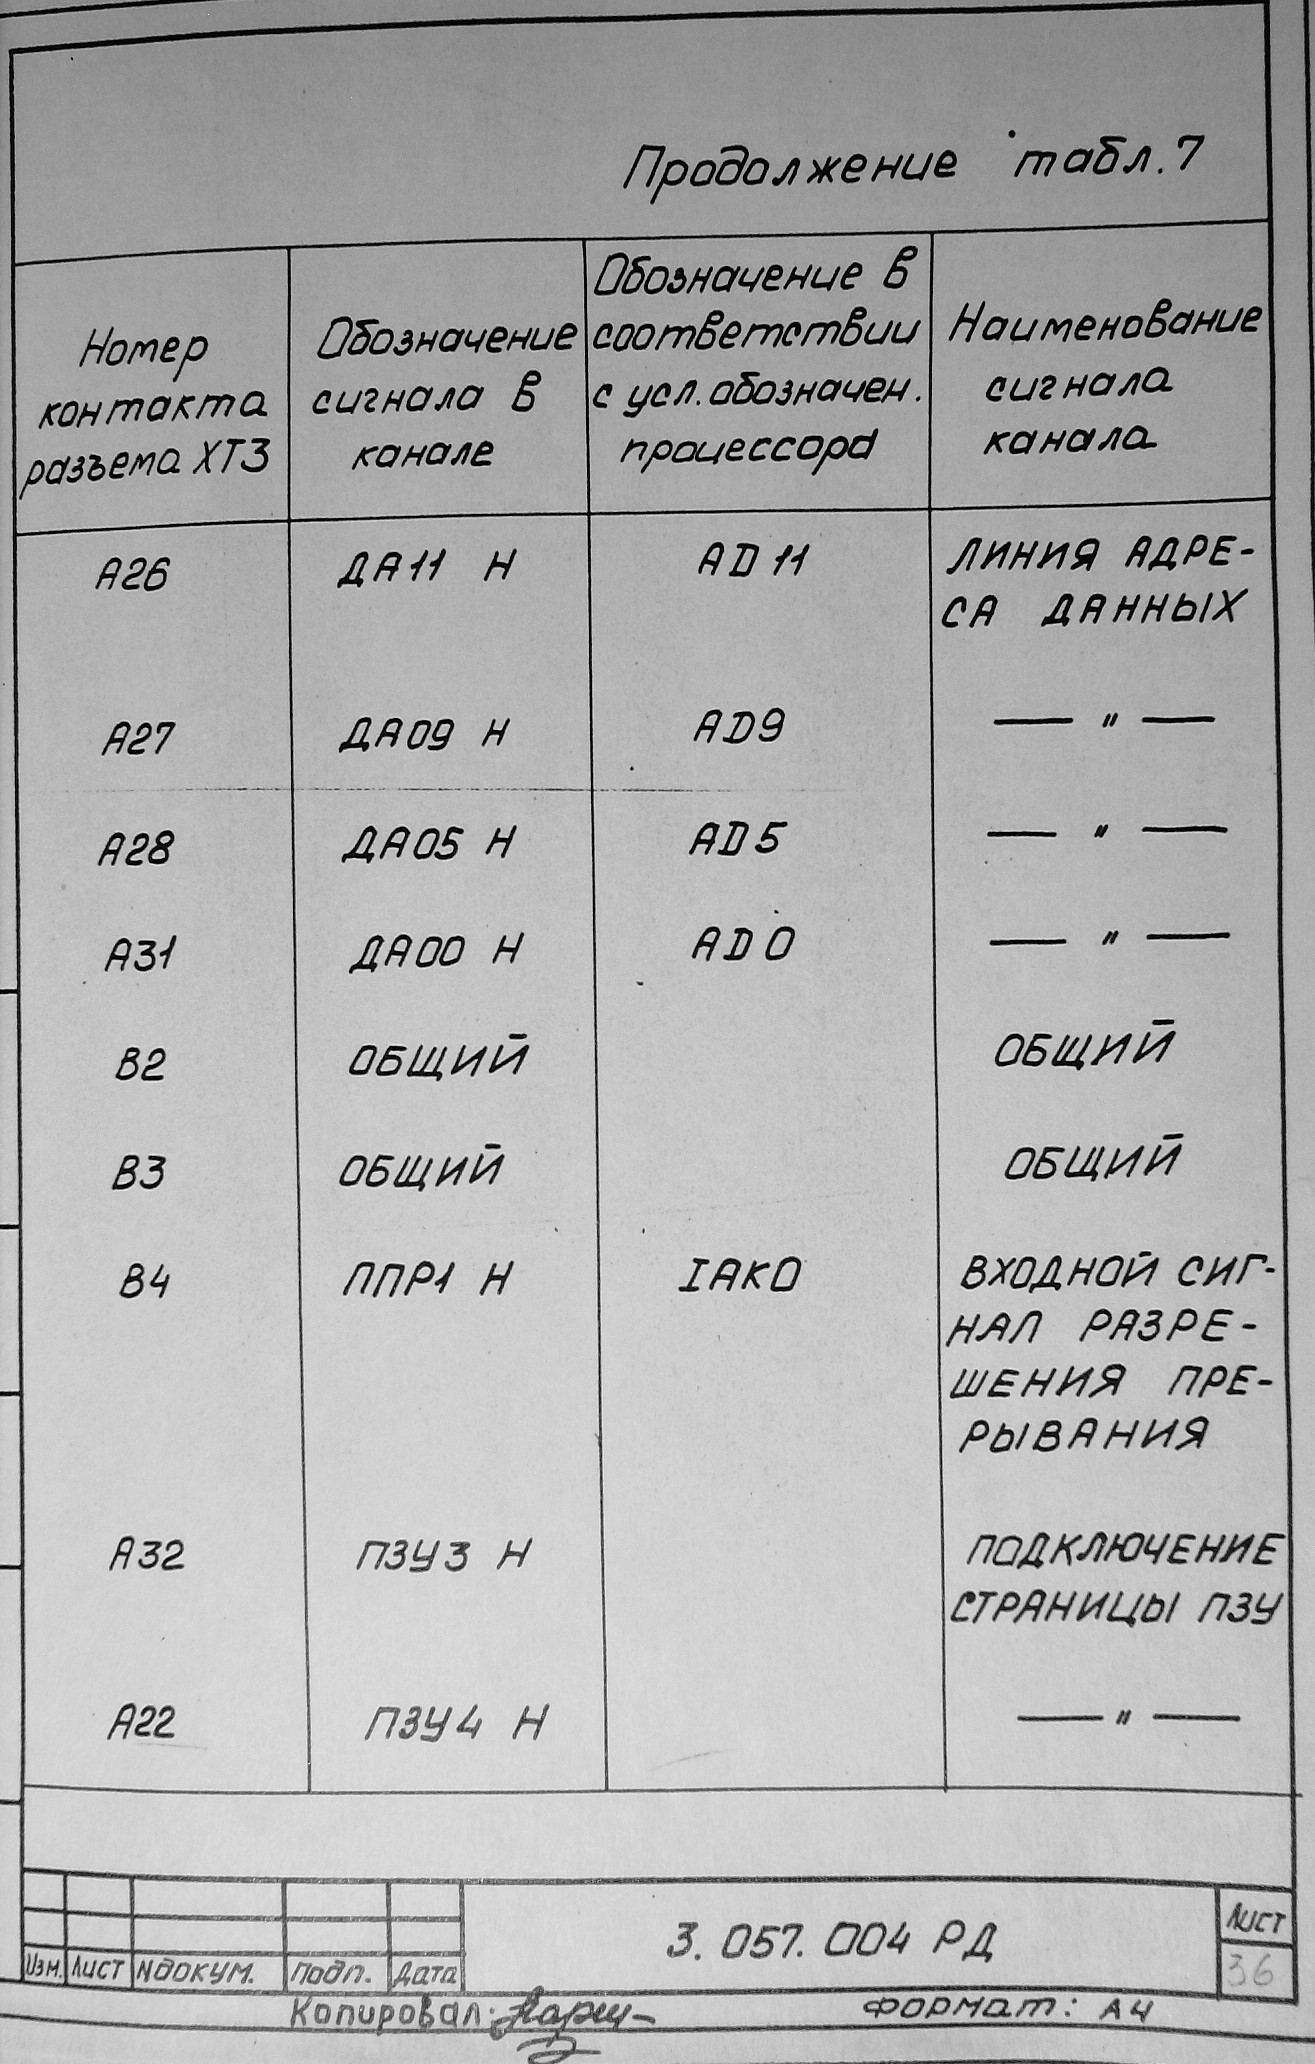 Продолжение табл. 7
Номер
контакта
разъема ХТ3
Обозначение
сигнала в
канале
Обозначение в
соответствии
с усл. обозначен.
процессора
Наименование
сигнала
канала
А26 ДА11 Н AD 11 ЛИНИЯ АДРЕ-
СА ДАННЫХ
А27 ДА09 Н AD9 — " —
А28 ДА05 Н AD5 — " —
А31 ДА00 Н AD0 — " —
В2 ОБЩИЙ ОБЩИЙ
В3 ОБЩИЙ ОБЩИЙ
В4 ППР1 Н IAKO ВХОДНОЙ СИГ-
НАЛ РАЗРЕ-
ШЕНИЯ ПРЕ-
РЫВАНИЯ
А32 ПЗУ3 Н ПОДКЛЮЧЕНИЕ
СТРАНИЦЫ ПЗУ
А22 ПЗУ4 Н — " —
3. 057. 004 РД
Лист
36
Изм. Лист Nдокум. Подп. Дата
Копировал: Формат: А4